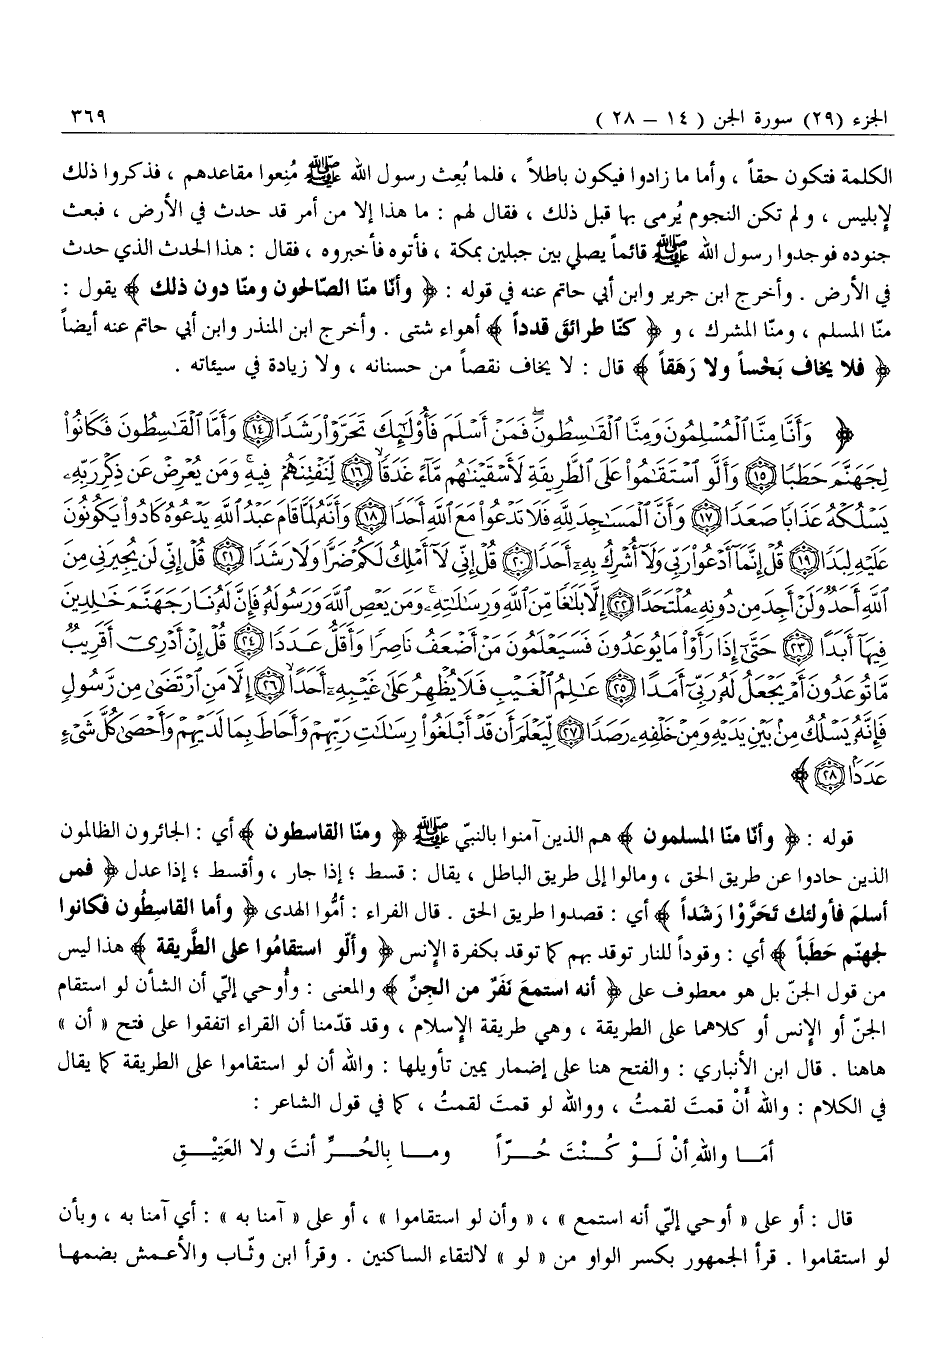 الجزء (٢٩) سورة الجن ( ١٤ – ٢٨ ) ٣٦٩
الكلمة فتكون حقاً ، وأما ما زادوا فيكون باطلاً ، فلما بُعِث رسول الله ﷺ مُنِعوا مقاعدهم ، فذكروا ذلك
لإبليس ، ولم تكن النجوم يُرمى بها قبل ذلك ، فقال لهم : ما هذا إلا من أمر قد حدث في الأرض ، فبعث
جنوده فوجدوا رسول الله ﷺ قائماً يصلي بين جبلين بمكة ، فأتوه فأخبروه ، فقال : هذا الحدث الذي حدث
في الأرض . وأخرج ابن جرير وابن أبي حاتم عنه في قوله : ﴿ وأنّا منّا الصّالحون ومنّا دون ذلك ﴾ يقول :
منّا المسلم ، ومنّا المشرك ، و ﴿ كنّا طرائقَ قدداً ﴾ أهواء شتى . وأخرج ابن المنذر وابن أبي حاتم عنه أيضاً
﴿ فلا يخاف بَخْساً ولا رَهَقاً ﴾ قال : لا يخاف نقصاً من حسناته ، ولا زيادة في سيئاته .
﴿ وَأَنَّا مِنَّا ٱلْمُسْلِمُونَ وَمِنَّا ٱلْقَٰسِطُونَۖ فَمَنْ أَسْلَمَ فَأُوْلَٰٓئِكَ تَحَرَّوْاْ رَشَدًا ١٤ وَأَمَّا ٱلْقَٰسِطُونَ فَكَانُواْ
لِجَهَنَّمَ حَطَبًا ١٥ وَأَلَّوِ ٱسْتَقَٰمُواْ عَلَى ٱلطَّرِيقَةِ لَأَسْقَيْنَٰهُم مَّآءً غَدَقًا ١٦ لِّنَفْتِنَهُمْ فِيهِۚ وَمَن يُعْرِضْ عَن ذِكْرِ رَبِّهِۦ
يَسْلُكْهُ عَذَابًا صَعَدًا ١٧ وَأَنَّ ٱلْمَسَٰجِدَ لِلَّهِ فَلَا تَدْعُواْ مَعَ ٱللَّهِ أَحَدًا ١٨ وَأَنَّهُۥ لَمَّا قَامَ عَبْدُ ٱللَّهِ يَدْعُوهُ كَادُواْ يَكُونُونَ
عَلَيْهِ لِبَدًا ١٩ قُلْ إِنَّمَآ أَدْعُواْ رَبِّي وَلَآ أُشْرِكُ بِهِۦٓ أَحَدًا ٢٠ قُلْ إِنِّي لَآ أَمْلِكُ لَكُمْ ضَرًّا وَلَا رَشَدًا ٢١ قُلْ إِنِّي لَن يُجِيرَنِي مِنَ
ٱللَّهِ أَحَدٌ وَلَنْ أَجِدَ مِن دُونِهِۦ مُلْتَحَدًا ٢٢ إِلَّا بَلَٰغًا مِّنَ ٱللَّهِ وَرِسَٰلَٰتِهِۦۚ وَمَن يَعْصِ ٱللَّهَ وَرَسُولَهُۥ فَإِنَّ لَهُۥ نَارَ جَهَنَّمَ خَٰلِدِينَ
فِيهَآ أَبَدًا ٢٣ حَتَّىٰٓ إِذَا رَأَوْاْ مَا يُوعَدُونَ فَسَيَعْلَمُونَ مَنْ أَضْعَفُ نَاصِرًا وَأَقَلُّ عَدَدًا ٢٤ قُلْ إِنْ أَدْرِيٓ أَقَرِيبٌ
مَّا تُوعَدُونَ أَمْ يَجْعَلُ لَهُۥ رَبِّيٓ أَمَدًا ٢٥ عَٰلِمُ ٱلْغَيْبِ فَلَا يُظْهِرُ عَلَىٰ غَيْبِهِۦٓ أَحَدًا ٢٦ إِلَّا مَنِ ٱرْتَضَىٰ مِن رَّسُولٍ
فَإِنَّهُۥ يَسْلُكُ مِنۢ بَيْنِ يَدَيْهِ وَمِنْ خَلْفِهِۦ رَصَدًا ٢٧ لِّيَعْلَمَ أَن قَدْ أَبْلَغُواْ رِسَٰلَٰتِ رَبِّهِمْ وَأَحَاطَ بِمَا لَدَيْهِمْ وَأَحْصَىٰ كُلَّ شَيْءٍ
عَدَدًا ٢٨ ﴾
قوله : ﴿ وأنّا منّا المسلمون ﴾ هم الذين آمنوا بالنبيّ ﷺ ﴿ ومنّا القاسطون ﴾ أي : الجائرون الظالمون
الذين حادوا عن طريق الحق ، ومالوا إلى طريق الباطل ، يقال : قسط ؛ إذا جار ، وأقسط ؛ إذا عدل ﴿ فمن
أسلمَ فأولئك تَحَرَّوْا رَشَداً ﴾ أي : قصدوا طريق الحق . قال الفراء : أمُّوا الهدى ﴿ وأما القاسِطُون فكانوا
لجهنّم حَطَباً ﴾ أي : وقوداً للنار توقد بهم كما توقد بكفرة الإنس ﴿ وألّو استقامُوا على الطَّريقة ﴾ هذا ليس
من قول الجنّ بل هو معطوف على ﴿ أنه استمعَ نَفَرٌ من الجِنِّ ﴾ والمعنى : وأُوحي إليّ أن الشأن لو استقام
الجنّ أو الإنس أو كلاهما على الطريقة ، وهي طريقة الإسلام ، وقد قدّمنا أن القراء اتفقوا على فتح « أن »
هاهنا . قال ابن الأنباري : والفتح هنا على إضمار يمين تأويلها : والله أن لو استقاموا على الطريقة كما يقال
في الكلام : والله أَنْ قمتَ لقمتُ ، ووالله لو قمتَ لقمتُ ، كما في قول الشاعر :
أمَــا واللهِ أنْ لَــوْ كُــنْتَ حُــرّاً ومــا بِالحُــرِّ أنتَ ولا العَتِيْــقِ
قال : أو على « أوحي إليّ أنه استمع » ، « وأن لو استقاموا » ، أو على « آمنا به » : أي آمنا به ، وبأن
لو استقاموا . قرأ الجمهور بكسر الواو من « لو » لالتقاء الساكنين . وقرأ ابن وثّاب والأعمش بضمها